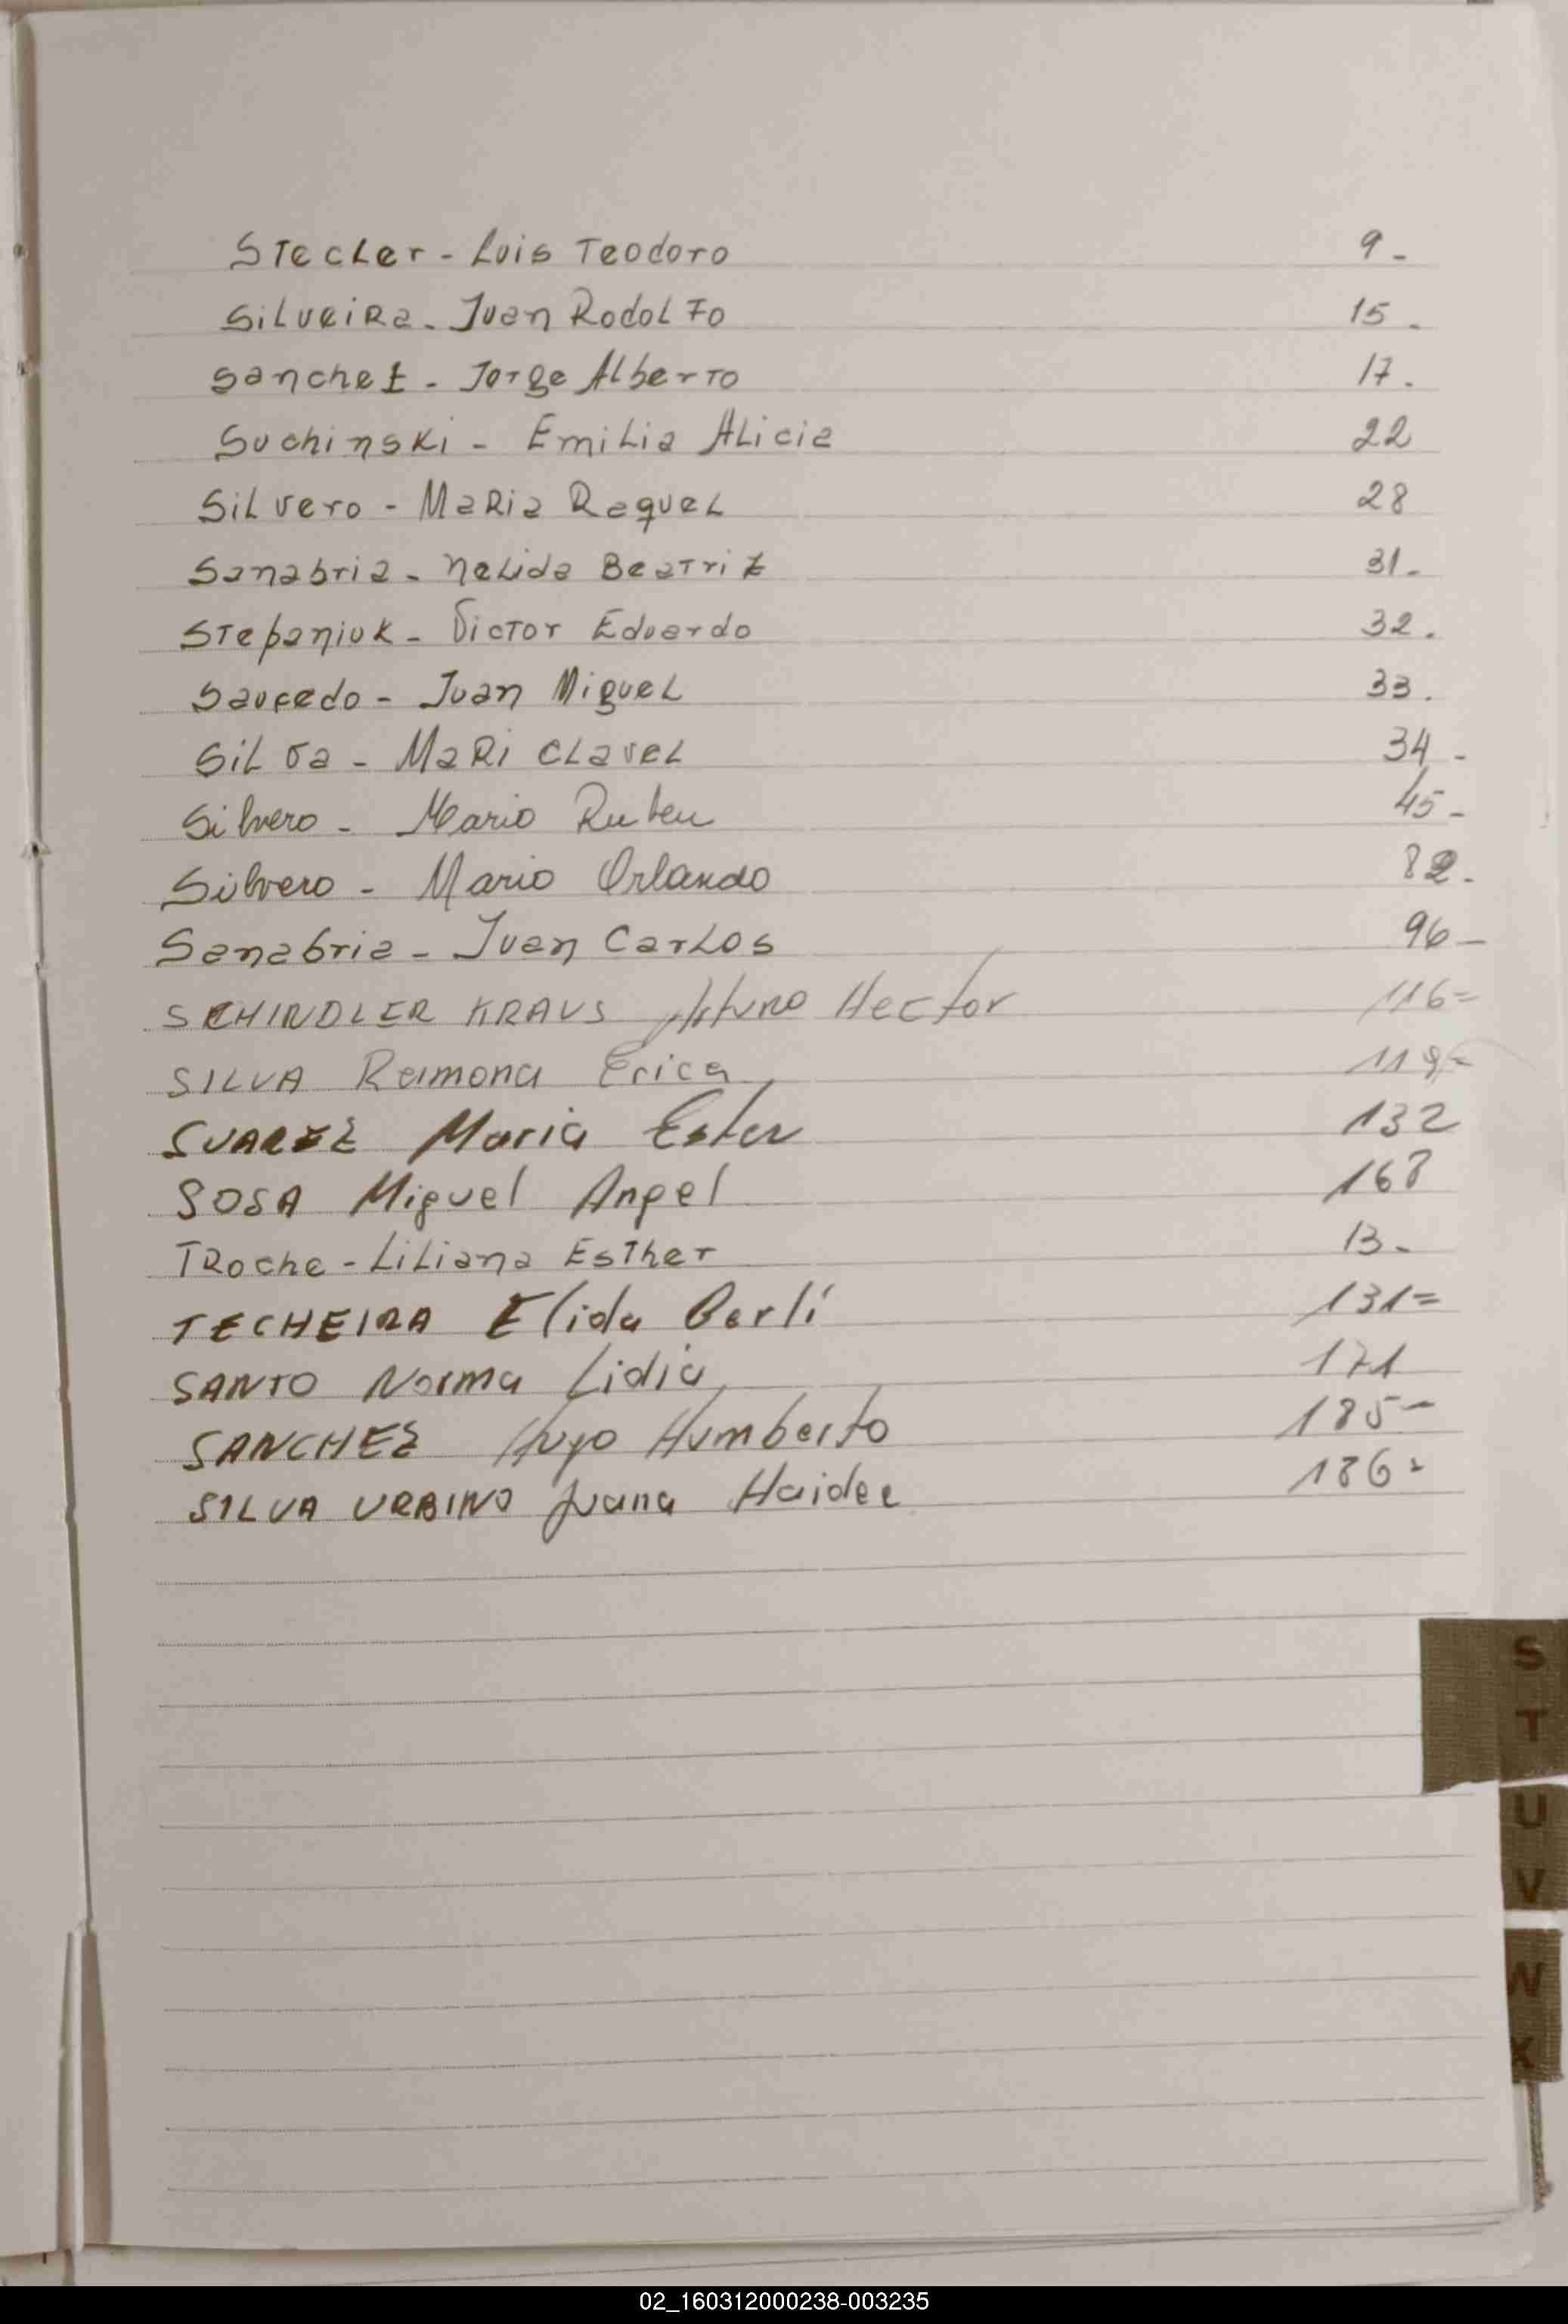 Stecler - Luis Teodoro 9-
Silveira - Juan Rodolfo 15.
Sanchez - Jorge Alberto 17.
Suchinski - Emilia Alicia 22
Silvero - Maria Raquel 28
Sanabria - Nelida Beatriz 31-
Stepaniuk - Victor Eduardo 32.
Saucedo - Juan Miguel 33.
Silva - Mari Clavel 34-
Silvero - Mario Ruben 45-
Silvero - Mario Orlando 82.
Sanabria - Juan Carlos 96-
SCHINDLER KRAUS Arturo Hector 116=
SILVA Ramona Erica 119=
SUAREZ Maria Ester 132
SOSA Miguel Angel 168
Troche - Liliana Esther 13-
TECHEIRA Elida Berli 131=
SANTO Norma Lidia 171
SANCHEZ Hugo Humberto 185-
SILVA URBINO Juana Haidee 186-
S
T
U
V
W
X
02_160312000238-003235